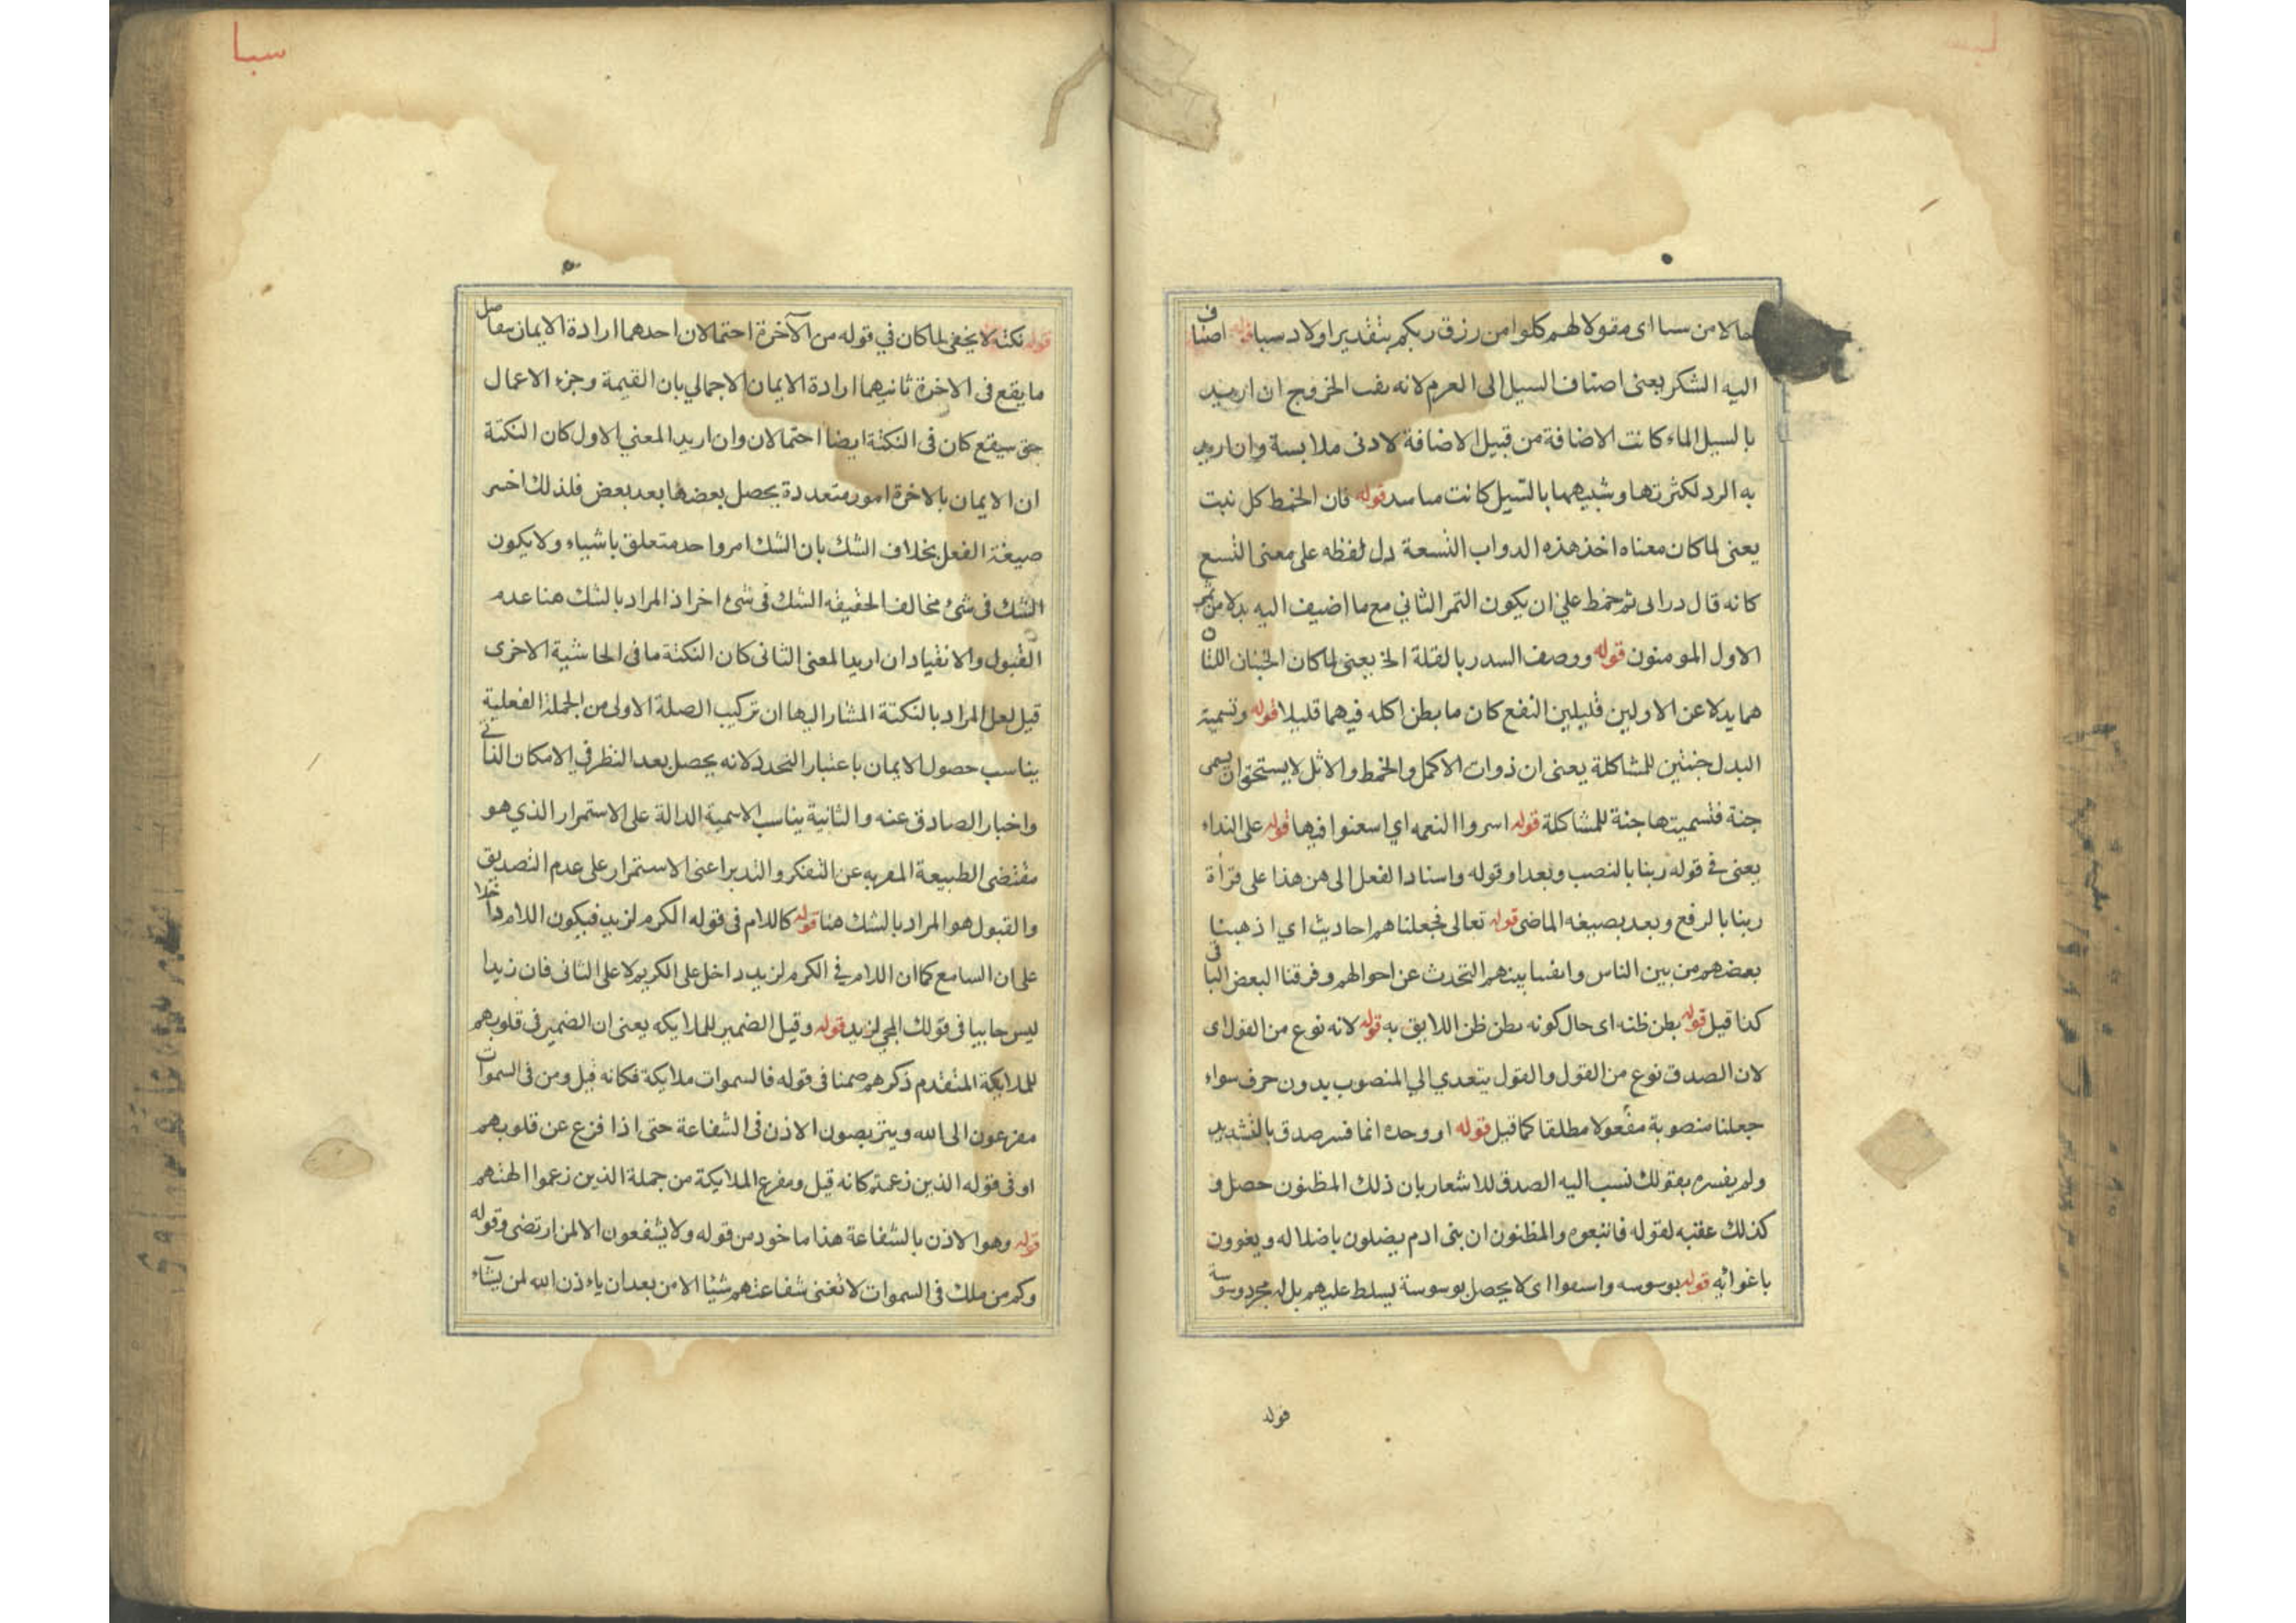 حالا من سبا اى مقولا لهم كلوا من رزق ربكم بتقدير اولاد سبا قوله اصناف
اليه الشكر يعنى اصناف السيل الى العرم لانه نقب الخ وفيح ان اريد
بالسيل الماء كانت الاضافة من قبيل الاضافة لادنى ملابسة وان اريد
به الرد لكثرتها وشبيهها بالسيل كانت قوله فان الخمط كل نبت
يعنى لما كان معناه اخذ هذه الدواب التسعة دل لفظه على معنى التسع
كانه قال در الى ثم خمط على ان يكون الثمر الثاني مع ما اضيف اليه بدلا من ثمر
الاول المومنون قوله ووصف السدر بالقلة الخ يعنى لما كان الجنتان اللتان
هما بدلا عن الاولين قليلين النفع كان ما بطن اكله فيهما قليلا قوله وتسمية
البدل جنتين للمشاكلة يعنى ان ذوات الاكل والخمط والاثل لا يستحق ان يسمى
جنة فتسميتها جنة للمشاكلة قوله اسروا النعمه اي اسعنوا فيها قوله على النداء
يعنى في قوله ربنا بالنصب وبعد او قوله واسناد الفعل الى هن هذا على قرأة
ربنا بالرفع وبعد بصيغه الماضى قوله تعالى فجعلناهم احاديث اي اذهبنا
بعضهم من بين الناس وابقينا بينهم التحدث عن احوالهم وفرقنا البعض الباقى
كذا قيل قوله بظن ظنه اى حال كونه بظن ظن اللايق به قوله لانه نوع من القول اى
لان الصدق نوع من القول والقول يتعدي الي المنصوب بدون حرف سواء
جعلنا منصوبة مفعولا مطلقا كما قيل قوله او وحده انما فسر صدق بالتشديد
ولم يفسره بقولك نسب اليه الصدق للاشعار بان ذلك المظنون حصل و
كذلك عقبه لقوله فاتبعوه والمظنون ان بنى ادم يضلون باضلاله ويغوون
باغوائه قوله بوسوسه واسعوا اى لا يحصل بوسوسة يسلط عليهم بل له مجرد وسوسة
قوله
سبا
قوله نكتة لا يخفى لما كان في قوله من الآخرة احتمالان احدهما ارادة الايمان بتفاصيل
ما يقع فى الاخرة ثانيهما ارادة الايمان الاجمالي بان القيمة وجزء الاعمال
حق سيقع كان فى النكتة ايضا احتمالان وان اريد المعنى الاول كان النكتة
ان الايمان بالاخرة امور متعددة يحصل بعضها بعد بعض فلذلك اختير
صيغة الفعل بخلاف الشك بان الشك امر واحد متعلق باشياء ولا يكون
الشك فى شئ مخالف الحقيقه الشك فى شئ اخر اذ المراد بالشك هنا عدم
القبول والانقياد ان اريد المعنى الثانى كان النكتة ما فى الحاشية الاخرى
قيل لعل المراد بالنكتة المشار اليها ان تركيب الصلة الاولى من الجملة الفعلية
يناسب حصول الايمان باعتبار التحدد لانه يحصل بعد النظر في الامكان الذاتي
واخبار الصادق عنه والثانية يناسب الاسمية الدالة على الاستمرار الذي هو
مقتضى الطبيعة المعريه عن التفكر والتدبر اعنى الاستمرار على عدم التصديق
والقبول هو المراد بالشك هنا قوله كاللام فى قوله الكرم لزيد فيكون اللام داخلا
على ان السامع كما ان اللام في الكرم لزيد داخل على الكريم لا على الثانى فان زيدا
ليس جابيا فى قولك المجي لزيد قوله وقيل الضمير للملايكه يعنى ان الضمير في قلوبهم
للملايكة المتقدم ذكرهم ضمنا فى قوله فالسموات ملايكة فكانه قيل ومن فى السموات
مفزعون الى الله ويتربصون الاذن فى الشفاعة حتى اذا فزع عن قلوبهم
او فى قوله الذين زعمتم كانه قيل ومفزع الملايكة من جملة الذين زعموا الهتهم
قوله وهو الاذن بالشفاعة هذا ماخود من قوله ولا يشفعون الا لمن ارتضى وقوله
وكم من ملك فى السموات لا تغنى شفاعتهم شيئا الا من بعد ان ياءذن الله لمن يشآء